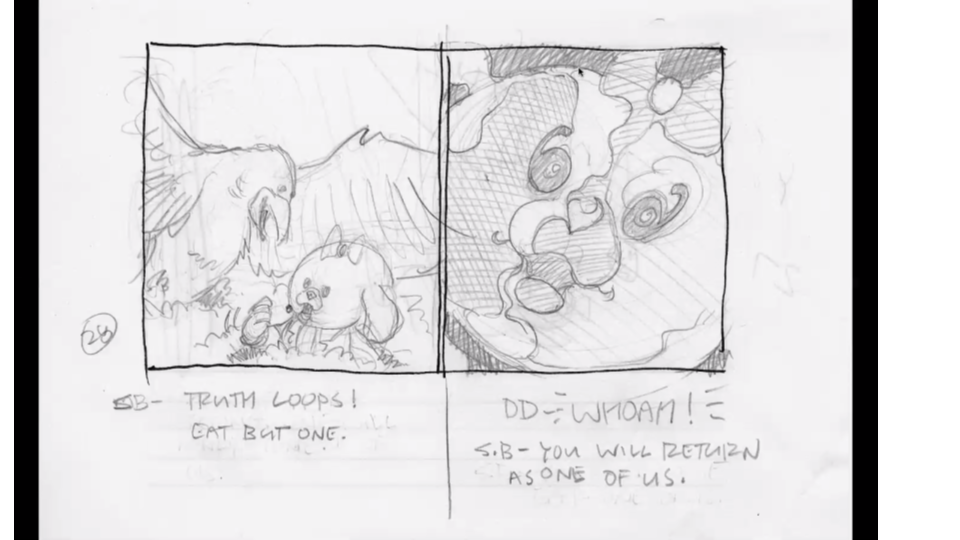 28
SB- TRUTH LOOPS!
EAT BUT ONE.
DD- WHOAM!
S.B- YOU WILL RETURN
AS ONE OF US.